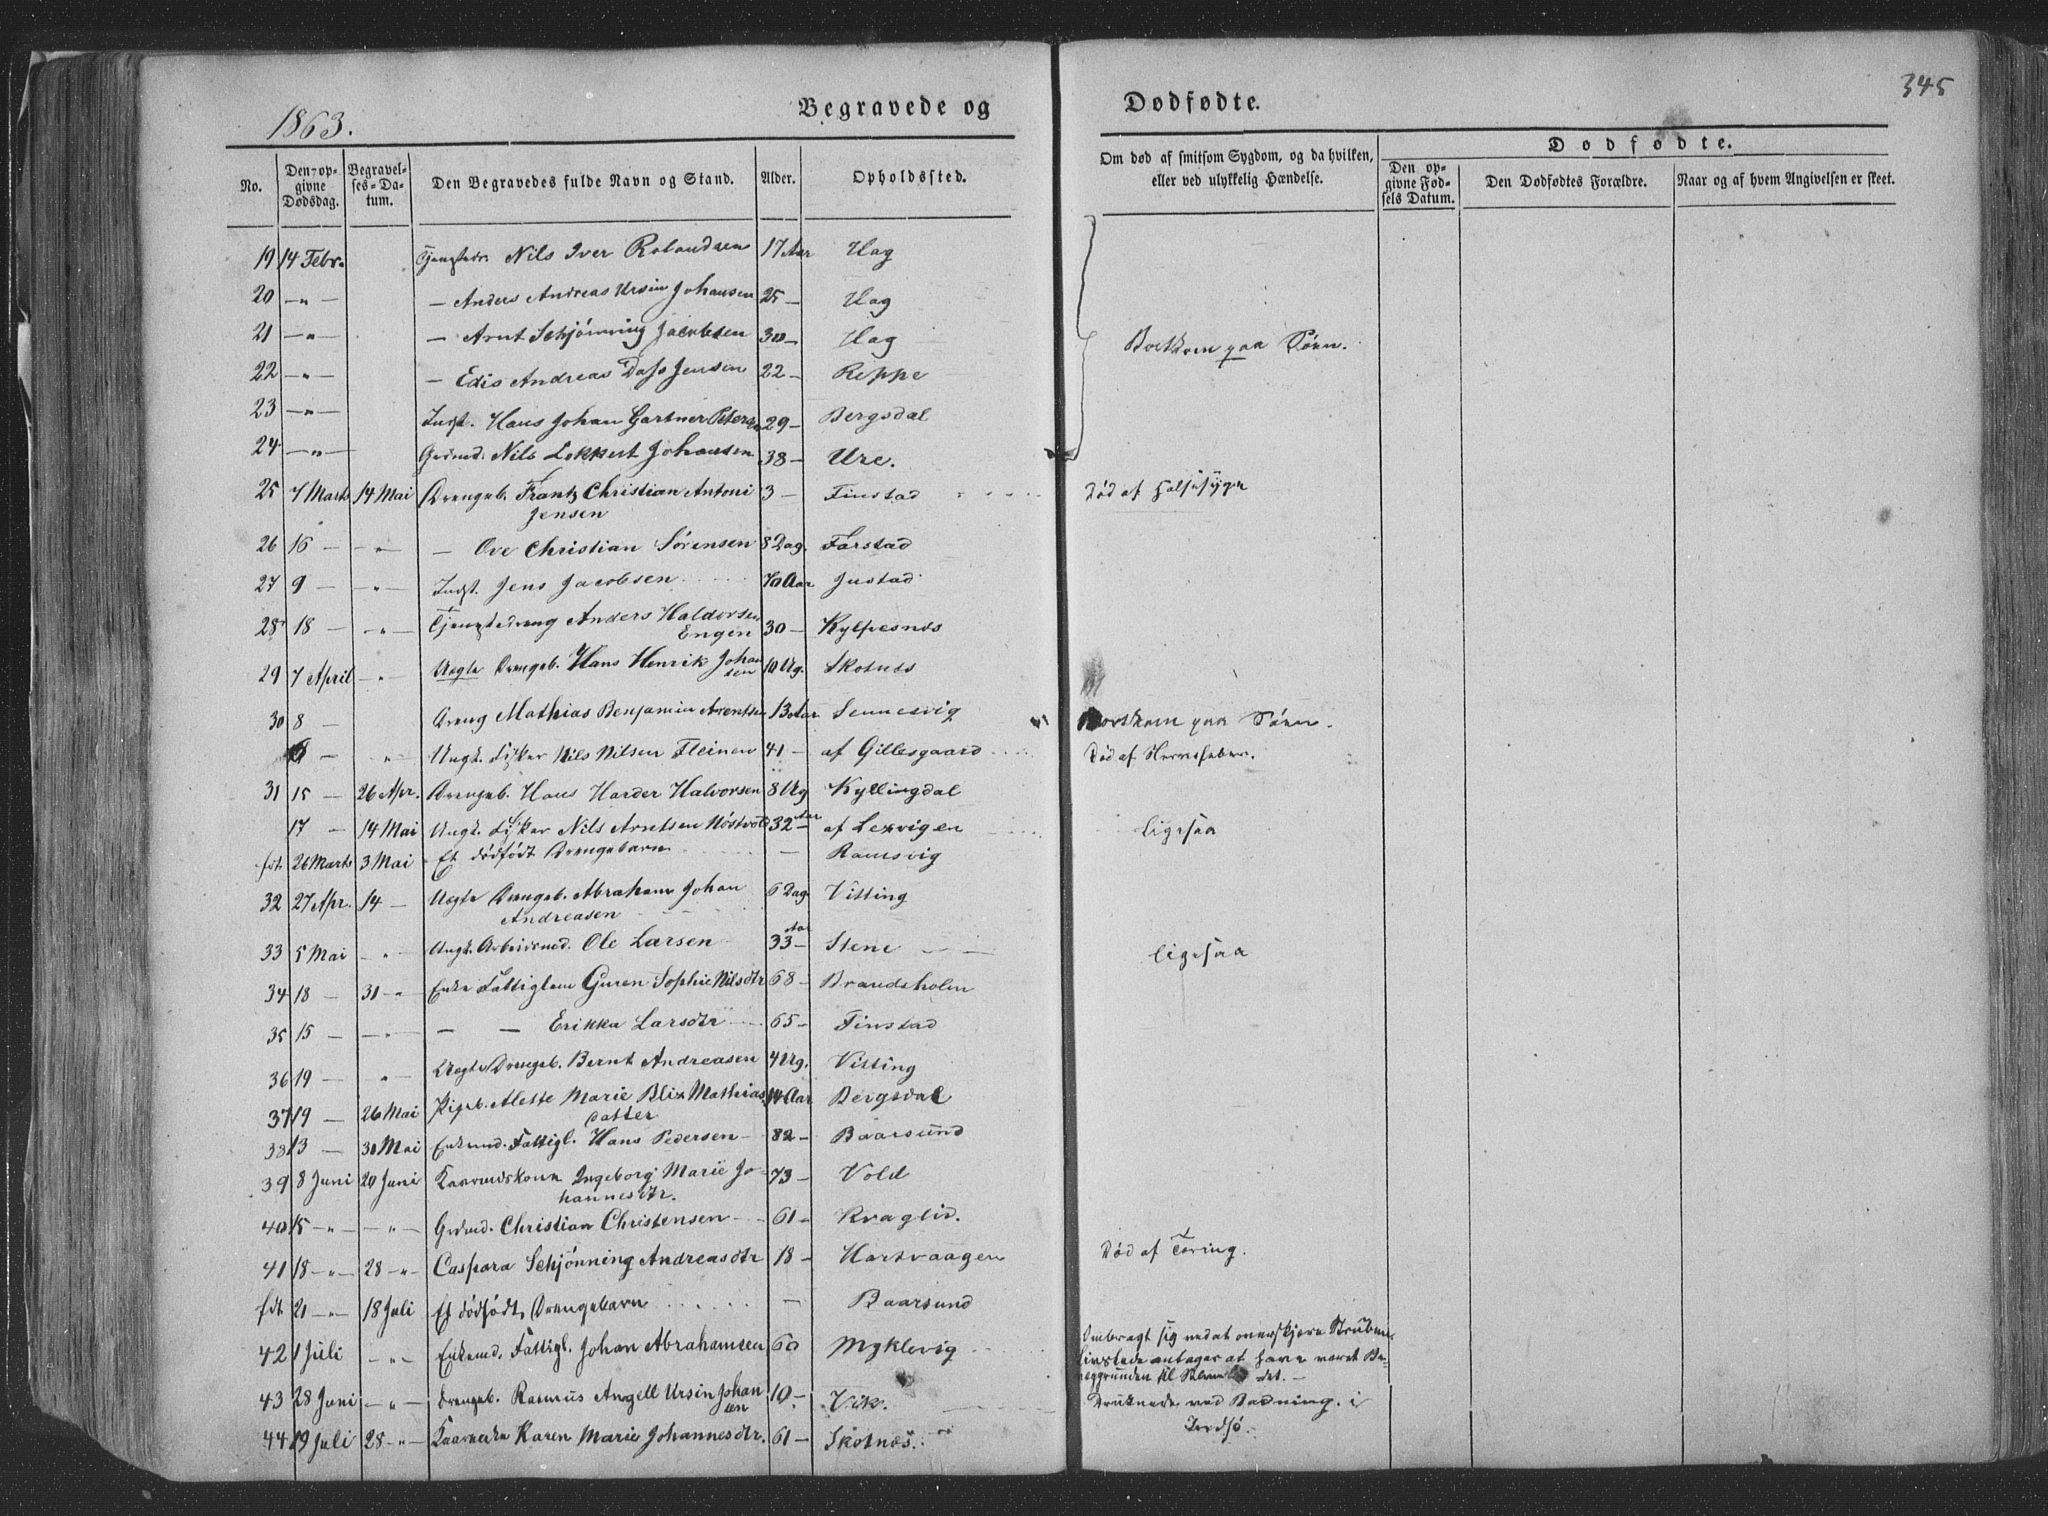 1863.
Begravede og
Dødfødte.
345
No.
Den opgivne Dødsdag.
Begravelses-Datum.
Den Begravedes fulde Navn og Stand.
Alder.
Opholdssted.
Om død af smitsom Sygdom, og da hvilken, eller ved ulykkelig Hændelse.
Dødfødte.
Den opgivne Fødsels Datum.
Den Dødfødtes Forældre.
Naar og af hvem Angivelsen er skeet.
19 14 Febr. Tjenestedr. Nils Iver Rolandsen 17 Aar Hag
20 — " — — Anders Andreas Ursin Johansen 25 — Hag
21 — " — — Arnt Schjønning Jacobsen 30 — Hag Bortkom paa Søen.
22 — " — — Edis Andreas Dass Jensen 22 — Reppe
23 — " — Indst. Hans Johan Gartner Petersen 29 — Bergsdal
24 — " — Grdmd. Nils Lokkert Johansen 38 — Ure.
25 7 Marts 14 Mai Drengeb. Frantz Christian Antoni 3 — Finstad Død af Halssyge
Jensen
26 16 — — " — — Ove Christian Sørensen 8 Dag. Farstad
27 9 — — " — Indst. Jens Jacobsen 70 Aar Justad
28 18 — — " — Tjenestedreng Anders Haldorsen 30 — Kylpesnes
Engen
29 7 April — " Uægte Drengeb. Hans Henrik Johan 10 Ug. Skotnes
sen
30 8 — Dreng Mathias Benjamin Arentsen 13 Aar Sennesvig Bortkom paa Søen.
— " Ungk. Fisker Nils Nilsen Fleinen 41 — af Gillesgaard Død af Nervefeber.
31 15 — 26 Apr. Drengeb. Hans Harder Halvorsen 8 Ug Kyllingdal
17 — 14 Mai Ungk. Fisker Nils Arntsen 32 Aar af Lexvigen Ligesaa
fdt. 26 Marts 3 Mai Et dødfødt Drengebarn — Ramsvig
32 27 Apr. 14 — Uægte Drengeb. Abraham Johan 6 Dag Vitting
Andreasen
33 5 Mai — " — Ungk. Arbeidsmd. Ole Larsen 33 Aar Stene Ligesaa
34 18 — 31 " — Enke Fattiglem Guren Sophie Nilsdtr 68 — Brandsholm
35 15 — — " — — — Erikka Larsdtr 65 — Finstad
36 19 — " Uægte Drengeb. Bernt Andreasen 4 Ug. Vitting
37 19 — 26 Mai Pigeb. Alette Marie Blix Mathias 14 Aar Bergsdal
datter
38 13 — 30 Mai Enkemd. Fattigl. Hans Pedersen 82 — Baarsund
39 8 Juni 20 Juni Kaarmdskone Ingeborg Marie Jo- 73 — Vold
hannesdtr.
40 15 — " — — " — Grdmd. Christian Christensen 61 — Kraglid.
41 18 — " — 28 — " — Caspara Schjønning Andreasdtr 18 — Hartvaagen Død af Tæring.
fdt. 21 — " — 18 Juli Et dødfødt Drengebarn — Baarsund
42 1 Juli — " — Enkemd. Fattigl. Johan Abrahamsen 60 Myklevig Ombragt sig ved at overskjære Struben.
Livslede antages at have været Be-
væggrunden til det. —
43 28 Juni — " — Drengeb. Rasmus Angell Ursin Johan 10 — Vik. Druknede ved Badning i
sen Ferdsø.
44 19 Juli 28 — " — Kaarenke Karen Marie Johannesdtr. 61 — Skotnæs.